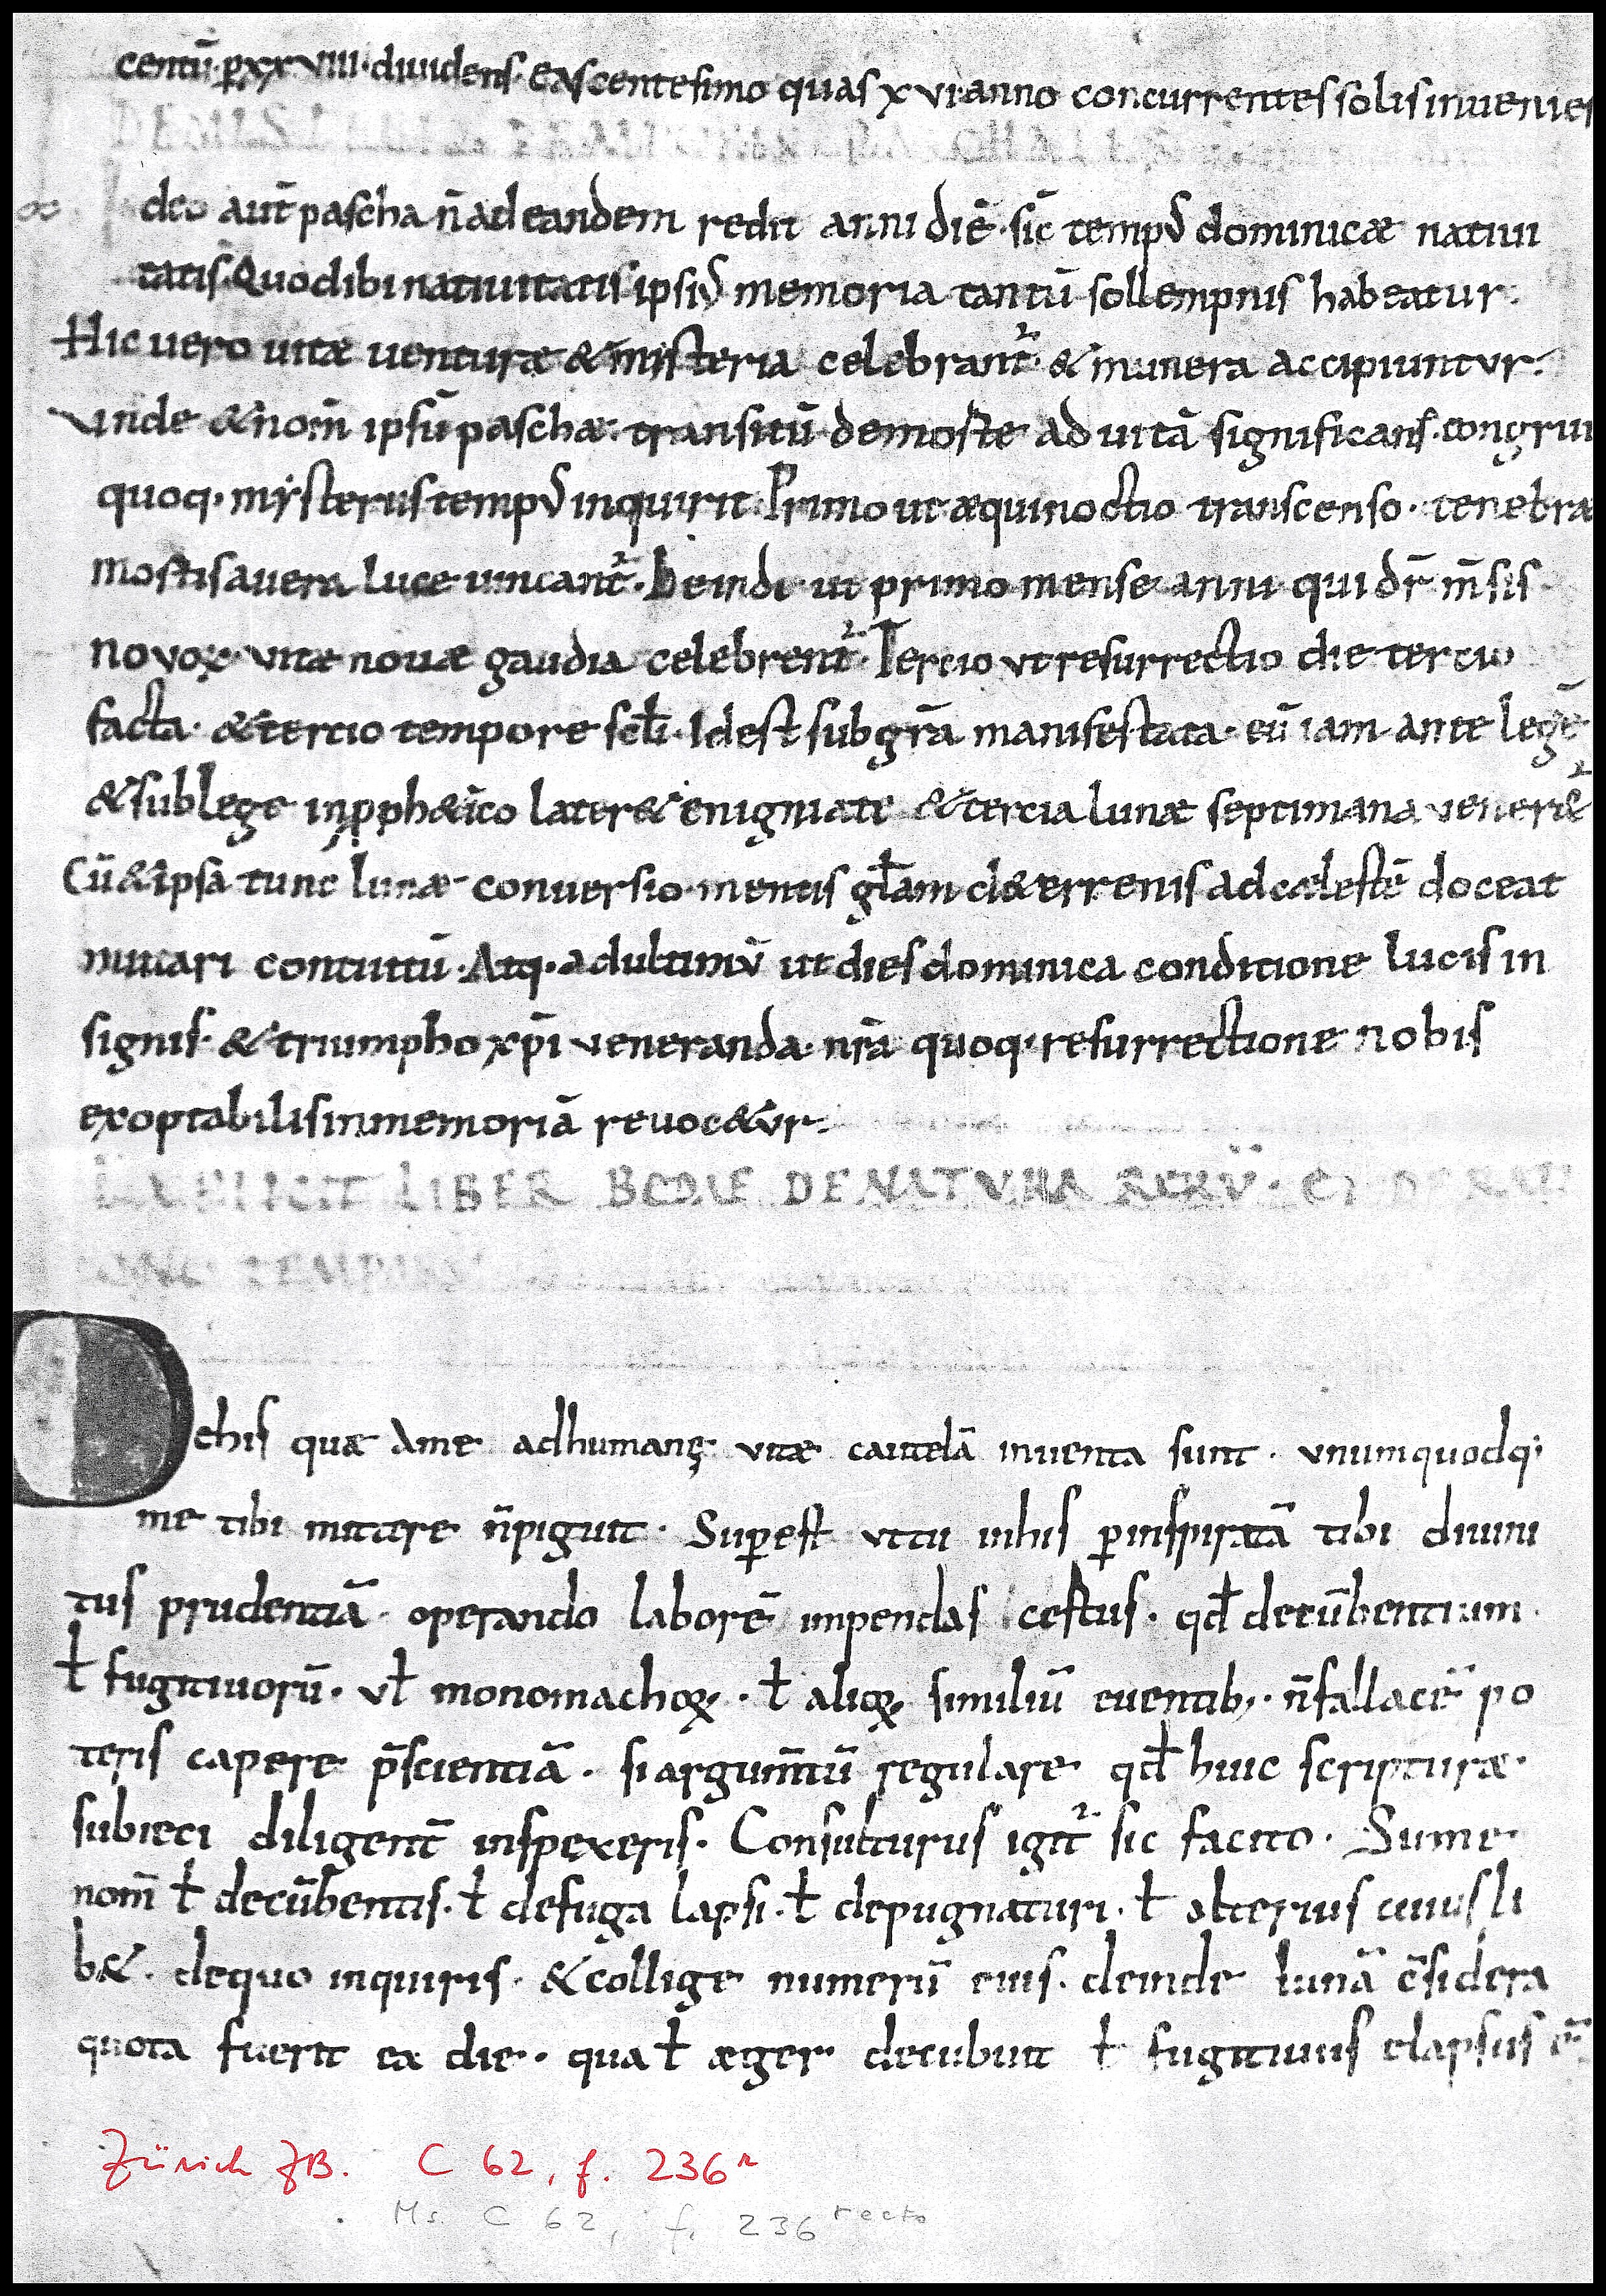 centū· ꝑxxviiii·diuidens· Eascentesimo quas xvi anno concurrentes solis inuenies
deo aut̄ pascha n̄ ad eandem redit anni diē· sic̄ temp᷒ dominicæ natiui
tatis· Quod ibi natiuitatis ipsi᷒ memoria tantū sollempnis habeatur·
Hic uero uitæ uenturæ & misteria celebrant᷑· & munera accipiuntur·
Vnde & nom̄ ipsū paschæ· transitū de morte ad uitā significans· congrui
quoq· mysteriis temp᷒ inquirit· Primo ut æquinoctio transcenso· tenebræ
mortis a uera luce uincant᷑· Deinde ut primo mense anni qui dr̄ m̄sis
novoꝝ· vitæ nouæ gaudia celebrent᷑· Tercio vt resurrectio die tercio
facta· & tercio tempore sc̄li· Idest sub gr̄a manifestata· cū iam ante legē
& sub lege in ꝓph&ico later& enigmate & tercia lunæ septimana vener&᷑
Cū & ipsa tunc lunæ conuersio mentis gl̄am de terrenis ad cælestē doceat
mutari contuitū· Atq· ad ultimū ut dies dominica conditione lucis in
signis· & triumpho xp̄i veneranda· nr̄a quoq· resurrectione nobis
exoptabilis in memoriā revoc&ur·
EXPLICIT LIBER BEDAE DE NATVRA RERV̄·
De his quæ a me ad humanę vitæ cautelā inventa sunt· vnumquodq;
me tibi mittere n̄ piguit· Superest vt tu in his ꝑ inspiratā tibi diuini
tus prudentiā· operando laborē impendas certus· qd̄ decūbentium
ł fugitiuorū· vł monomachoꝝ· ł alioꝝ similiū euentib;· n̄ fallacē po
teris capere p̄scientiā· si argum̄tū regulare qd̄ huic scripturæ·
subieci diligent̄ inspexeris· Consulturus igit᷑ sic facito· Sume
nom̄ ł decūbentis· ł de fuga lapsi· ł depugnaturi· ł alterius cuius li
b&· de quo inquiris· & collige numerū eius· deinde lunā c̄sidera
quota fuerit ea die· qua ł æger decubuit ł fugitiuus elapsus ē
Zürich ZB. C 62, f. 236ʳ
Ms. C 62, f. 236 recto